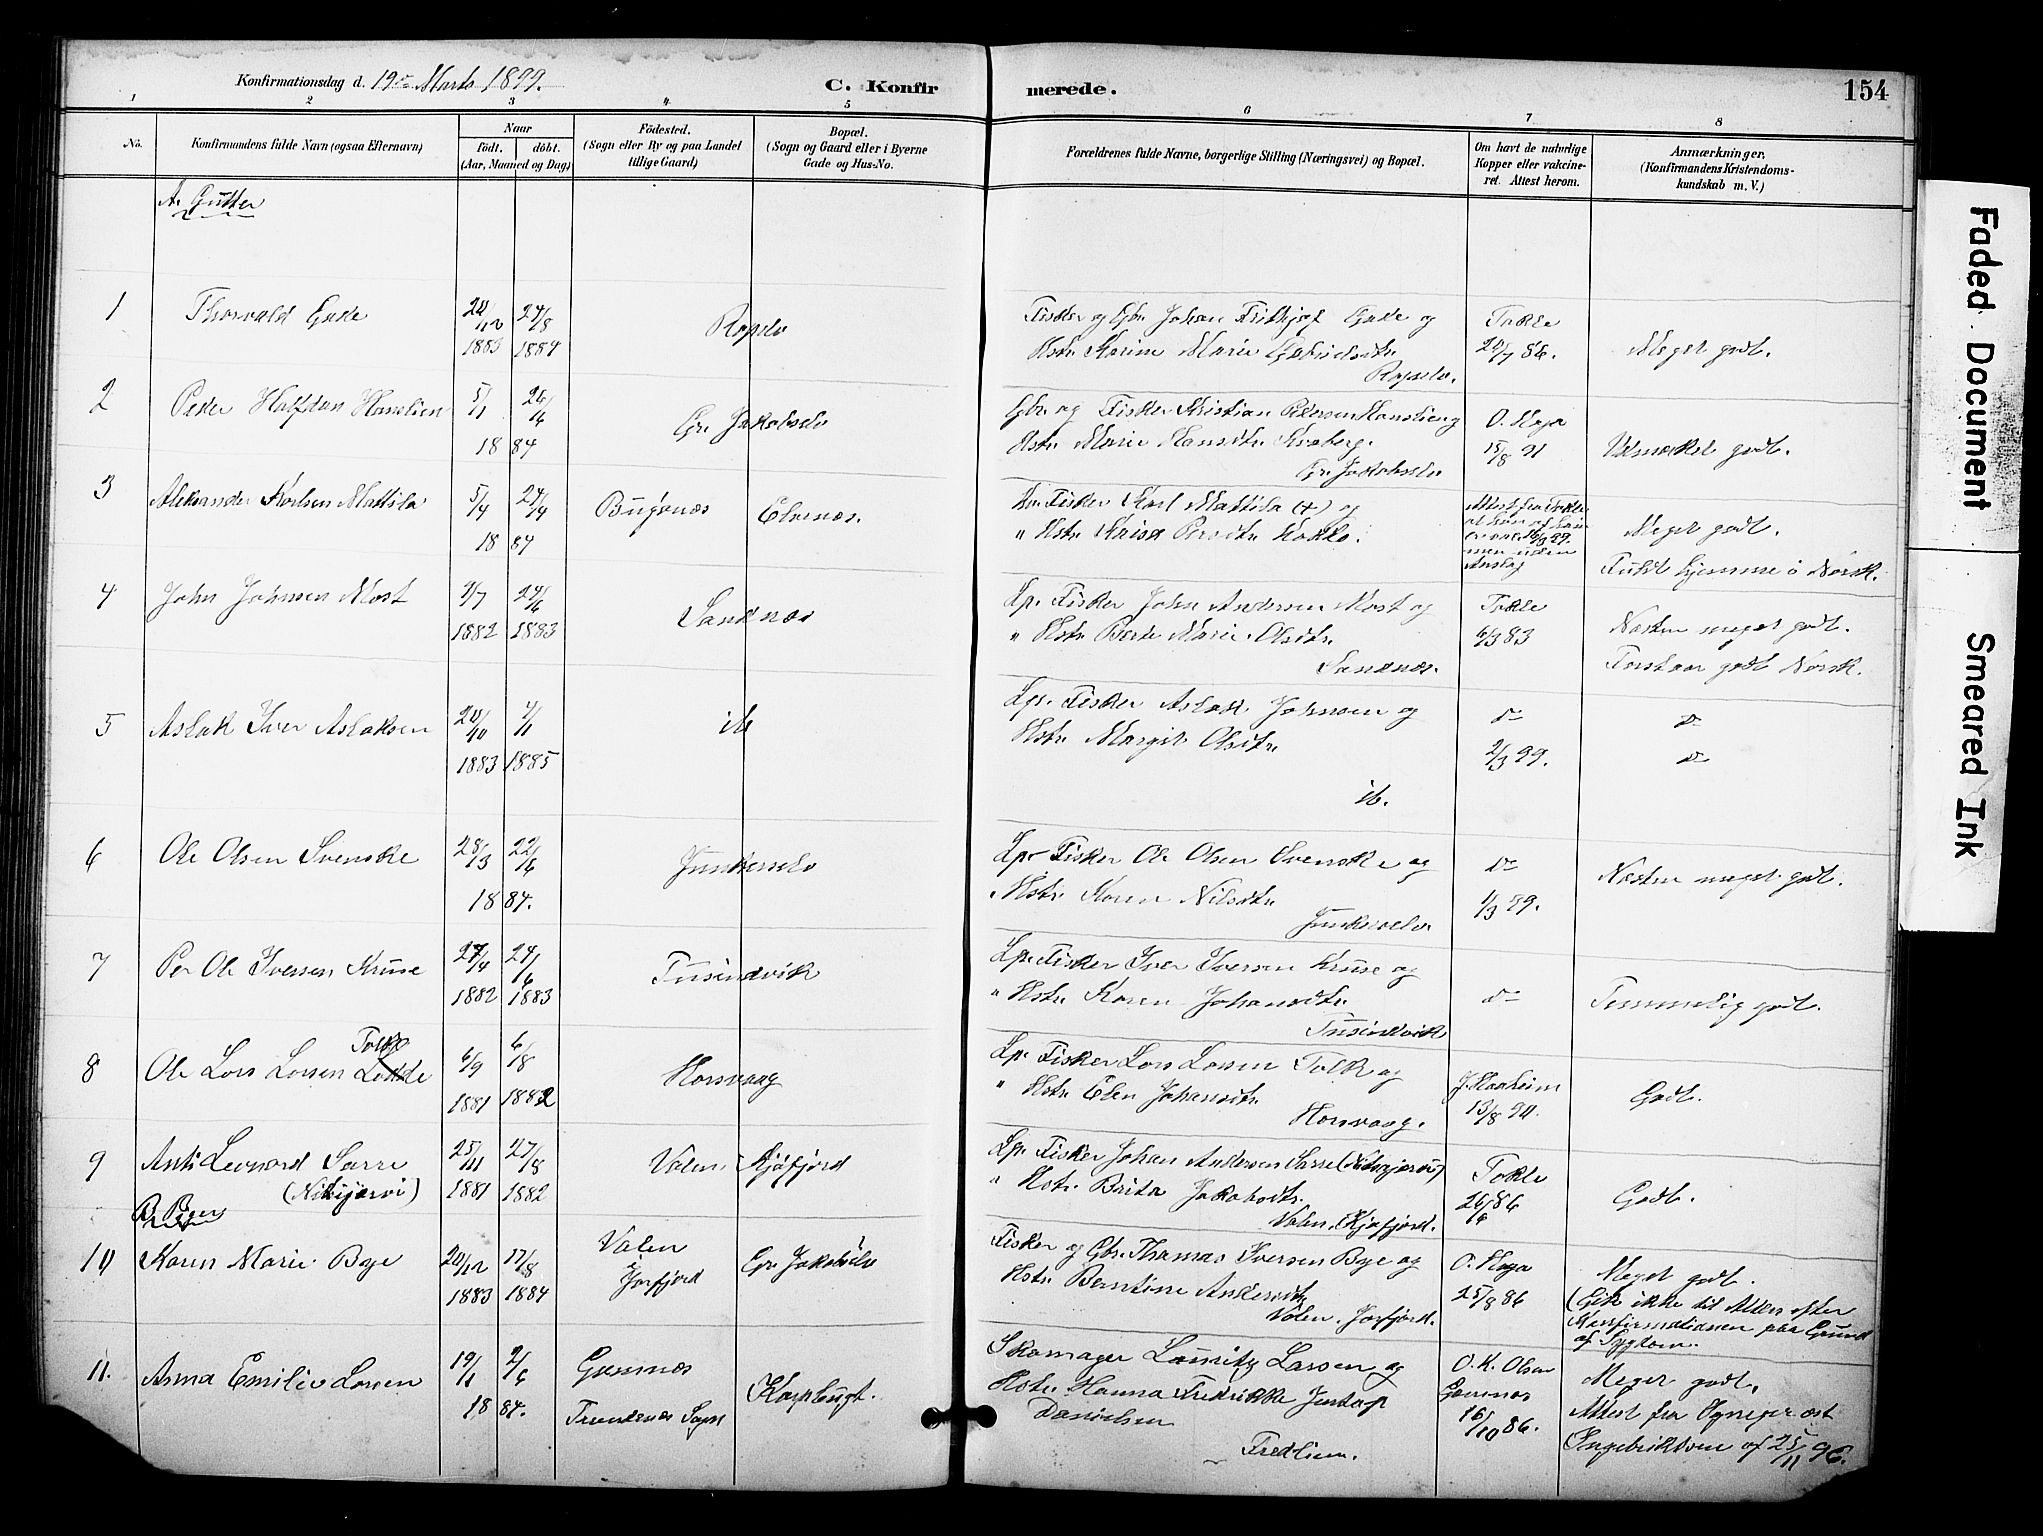 Konfirmationsdag d. 19de Marts 1899.
C. Konfirmerede.
154
1 2 3 4 5 6 7 8
No.
Konfirmandens fulde Navn (ogsaa Efternavn)
Naar
födt. döbt.
(Aar, Maaned og Dag)
Födested.
(Sogn eller By og paa Landet
tillige Gaard)
Bopæl.
(Sogn og Gaard eller i Byerne
Gade og Hus-No.
Forældrenes fulde Navne, borgerlige Stilling (Næringsvei) og Bopæl.
Om havt de naturlige
Kopper eller vakcine-
ret. Attest herom.
Anmærkninger.
(Konfirmandens Kristendoms-
kundskab m. V.)
A. Gutter
1 Thorvald Gade
1883 1884
Fisker og Gbr. Johan Fridtjof Gade og
Hstr. Karine Marie
Takle
Meget godt.
2 Peder Halfdan Hanslien
5/1 26/6
18 84
Gr. Jakobselv
Gbr. og Fisker Kristian Pedersen Hanslien og
Hstr. Marie Hansdtr.
Gr. Jakobselv
O. Haga
15/8 91
Udmærket godt.
3 Aleksander Karlsen Mattila
5/4 24/4
18 84
Bugönæs
Elvenæs.
Kv. Fisker Karl Mattila (+) og
" Hstr. Kaisa Persdtr. Kokko.
Attest fra Takle
Meget godt.
Fuldt hjemme i Norsk.
4 John Johnsen Mast
9/7 24/6
1882 1883
Sandnæs
Lp. Fisker John Andersen Mast og
" Hstr. Berte Marie Olsdtr.
Sandnæs.
Takle
6/3 83
Næsten meget godt.
Forstaar godt Norsk.
5 Aslak Iver Aslaksen
1883 1885
ib
Lp. Fisker Aslak Johnsen og
Hstr. Margit Olsdtr.
ib.
do
2/3 99.
do
do
6 Ole Olsen Svenske
28/3 22/6
18 84.
Junkerselv
Lp. Fisker Ole Olsen Svenske og
Hstr. Karen Nilsdtr.
Junkerselv
do
1/3 99.
Næsten meget godt.
7 Per Ole Iversen Kruse
27/4 24/6
1882 1883
Tusindvik
Lp. Fisker Iver Iversen Kruse og
" Hstr. Karen Johansdtr.
Tusindvik
do
Temmelig godt.
8 Ole Lars Larsen Tolk
6/9 6/8
1881 1882
Hornvaag
Lp. Fisker Lars Larsen Tolk og
" Hstr. Elen Johansdtr.
Hornvaag.
J. Haaheim
13/8 94.
Godt.
9 Anti Leonard Sarre
(Nikijærvi)
25/11 27/8
1881 1882
Valen, Kjöfjord
Lp. Fisker Johan Andersen Sarre (Nikijærvi)
" Hstr. Brita Jakobsdtr.
Valen, Kjöfjord.
Takle
26/6 86
Godt.
B. Piger
10 Karen Marie Bye
20/12 17/8
1883 1884
Valen
Jarfjord
Gr. Jakobselv
Fisker og Gbr. Thomas Iversen Bye og
Hstr. Berntine Andersdtr.
Valen, Jarfjord.
O. Haga
25/8 86
Meget godt.
(Gik ikke til Alters efter
Konfirmationen paa Grund
af Sygdom.
11. Anna Emilie Larsen
19/1 2/6
18 84.
Gausnæs
Trondenæs Sogn
Karpbugt.
Skomager Lauritz Larsen og
Hstr. Hanna Fredrikke
Danielsen
O. K. Olsen
Gausnæs
16/10 86.
Meget godt.
Attest fra
Ingebrigtsen af 25/11 96.
Faded Document
Smeared Ink